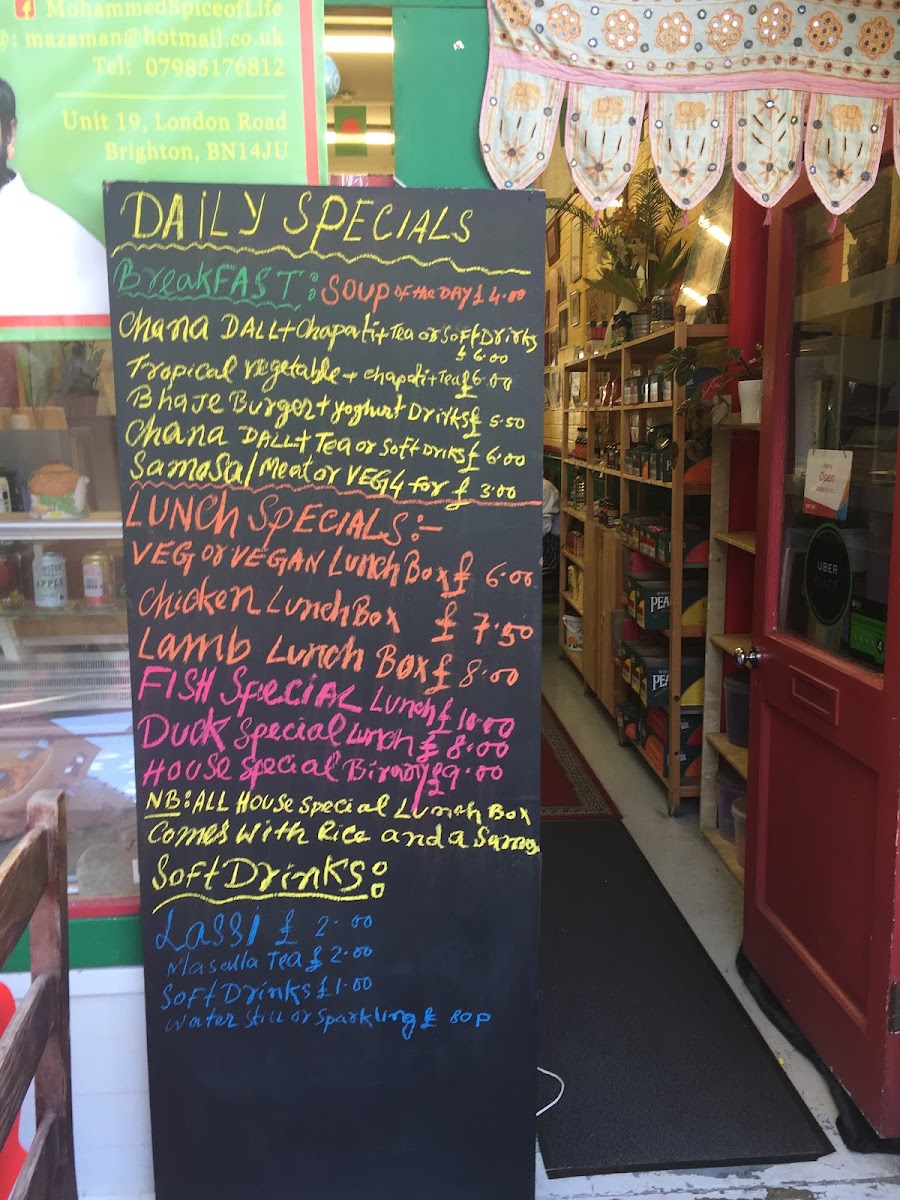 MohammedSpiceofLife
@: mazaman@hotmail.co.uk
Tel: 07985176812
Unit 19, London Road
Brighton, BN14JU
DAILY SPECIALS
BreakFAST: Soup of the DAY £ 4.00
Chana DALL+chapati+Tea or Soft Drinks
£ 6.00
Tropical vegetable + chapati+Tea £6.00
Bhaje Burger + yoghurt Drinks £ 5.50
Chana DALL+ Tea or Soft Drinks £ 6.00
Samosa/Meat or VEG 4 for £ 3.00
LUNCH SPECIALS:-
VEG or VEGAN Lunch Box £ 6.00
Chicken Lunch Box £ 7.50
Lamb Lunch Box £ 8.00
FISH Special Lunch £ 10.00
Duck Special Lunch £ 8.00
House Special Birnay £9.00
NB: ALL House special Lunch Box
Comes with Rice and a Samos
Soft Drinks:
Lassi £ 2.00
Masalla Tea £ 2.00
Soft Drinks £1.00
Water still or sparkling £ 80p
Open
UBER
EATS
APPLE
PEA
PEA